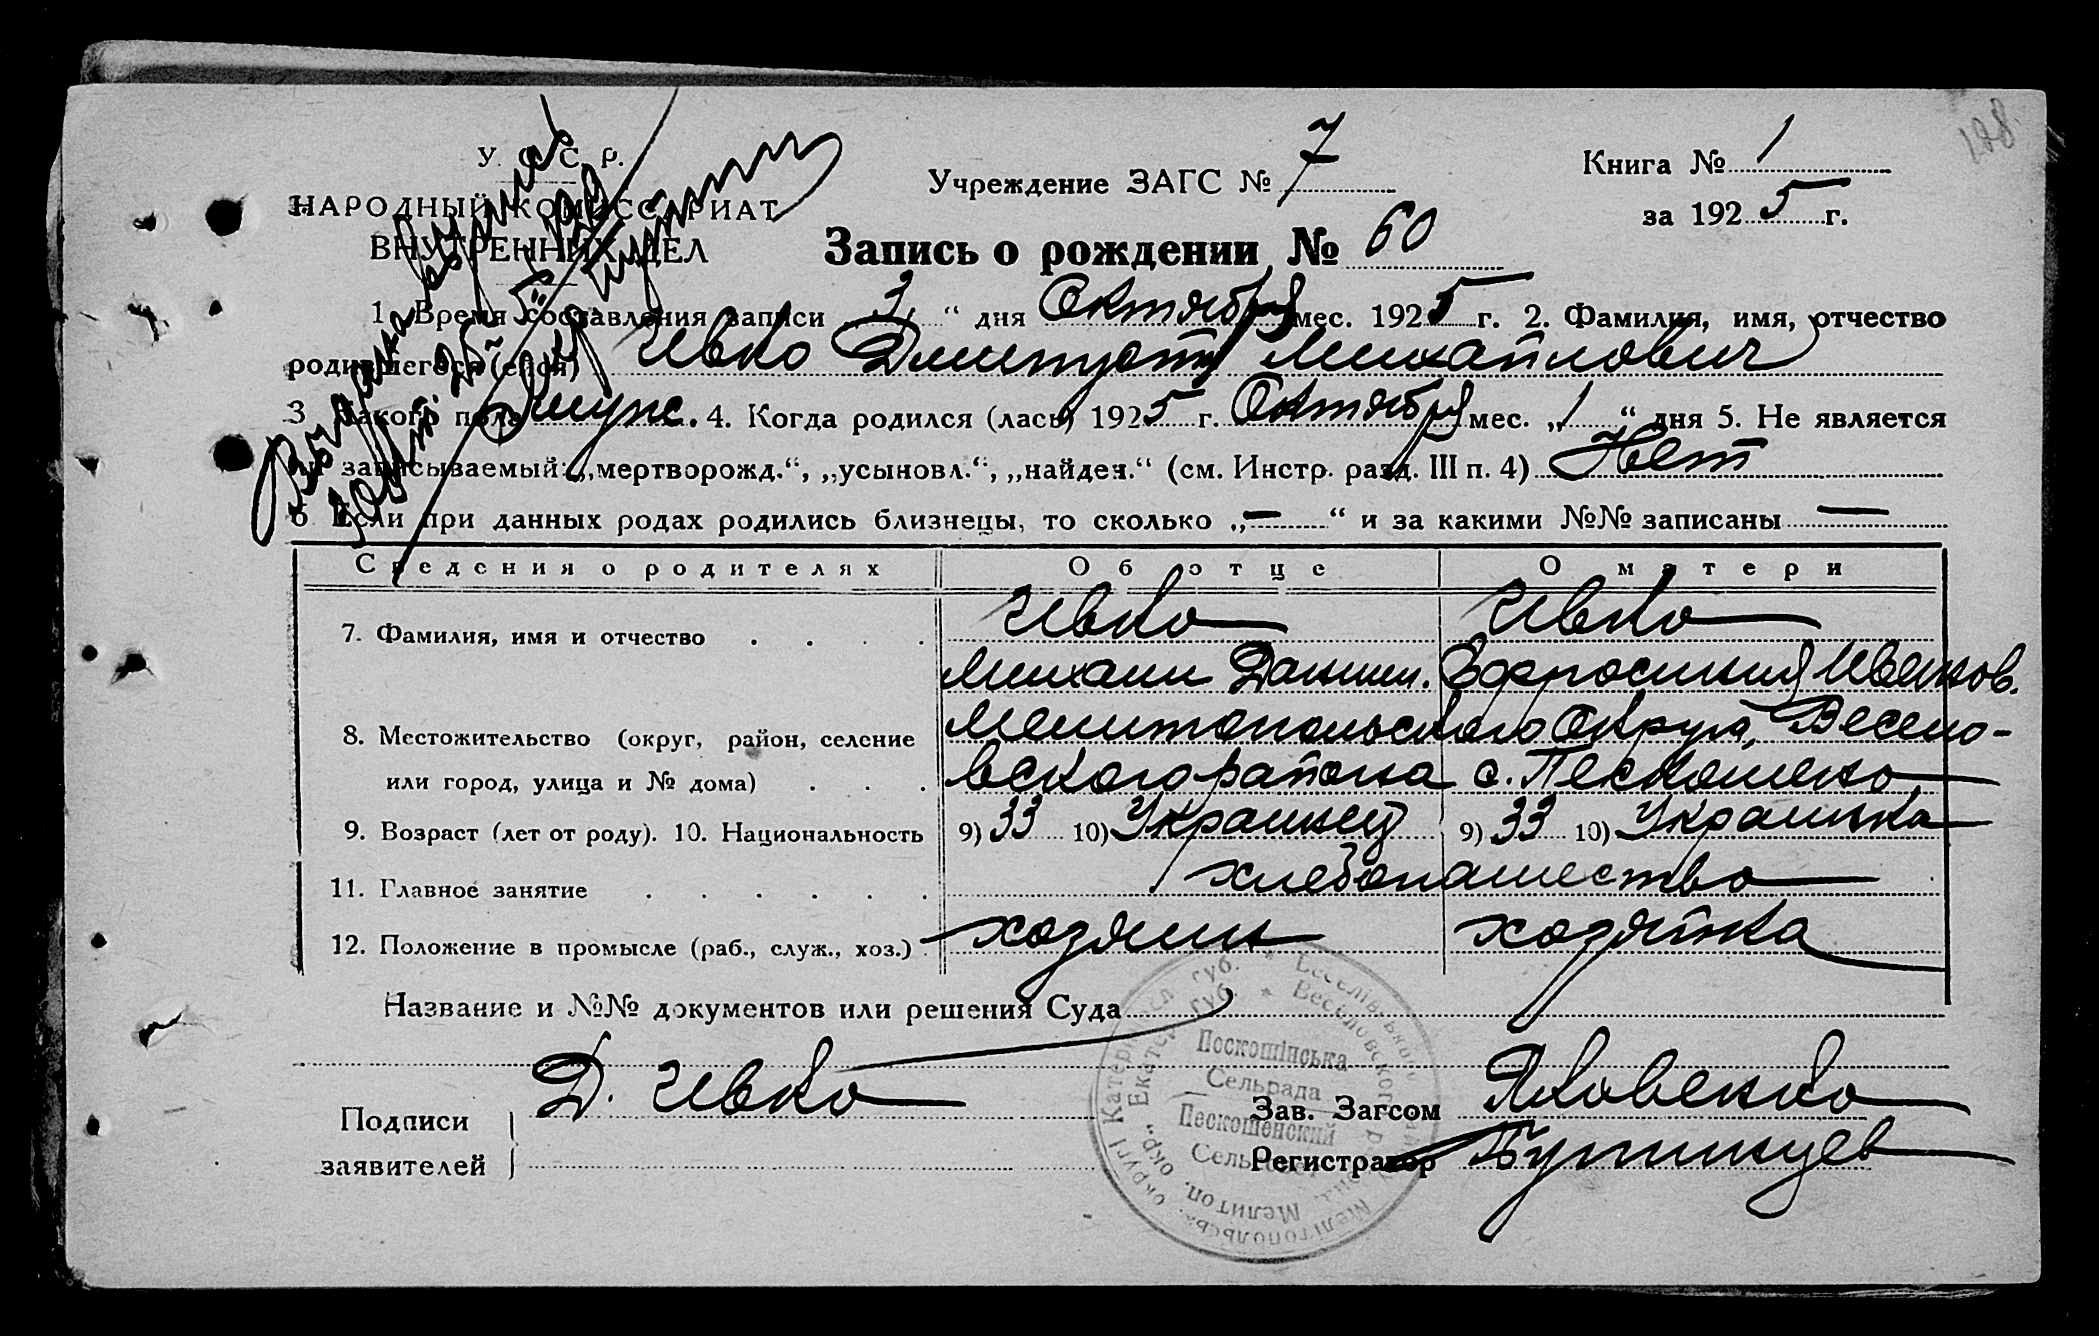 128.
У. С. С. Р.
НАРОДНЫЙ КОМИССАРИАТ
ВНУТРЕННИХ ДЕЛ
Учреждение ЗАГС № 7
Книга № 1
за 1925 г.
Запись о рождении № 60
1. Время составления записи „3“ дня Октября мес. 1925 г. 2. Фамилия, имя, отчество
родившегося (ейся) Ивко Дмитрий Михайлович
3. Какого пола муж. 4. Когда родился (лась) 1925 г. Октября мес. „1“ дня 5. Не является
ли записываемый: „мертворожд.“, „усыновл.“, „найден.“ (см. Инстр. разд. III п. 4) Нет
6 Если при данных родах родились близнецы, то сколько „—“ и за какими №№ записаны —
Сведения о родителях Об отце О матери
7. Фамилия, имя и отчество Ивко Ивко
Михаил Данил. Ефросиния Иванов.
8. Местожительство (округ, район, селение Мелитопольского Округа, Весело-
или город, улица и № дома) вского района с. Пескошено
9. Возраст (лет от роду). 10. Национальность 9) 33 10) Украинец 9) 33 10) Украинка
11. Главное занятие хлебопашество
12. Положение в промысле (раб., служ., хоз.) хозяин хозяйка
Название и №№ документов или решения Суда
Подписи
заявителей
Д. Ивко
Зав. Загсом Яковенко
Регистратор
Поскошінська
Сельрада
Пескошенский